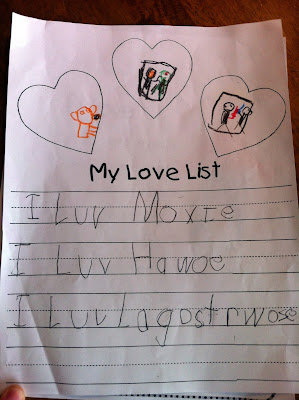 My Love List
I Luv Moxie
I Luv Hawoe
I Luv Lagostrwose